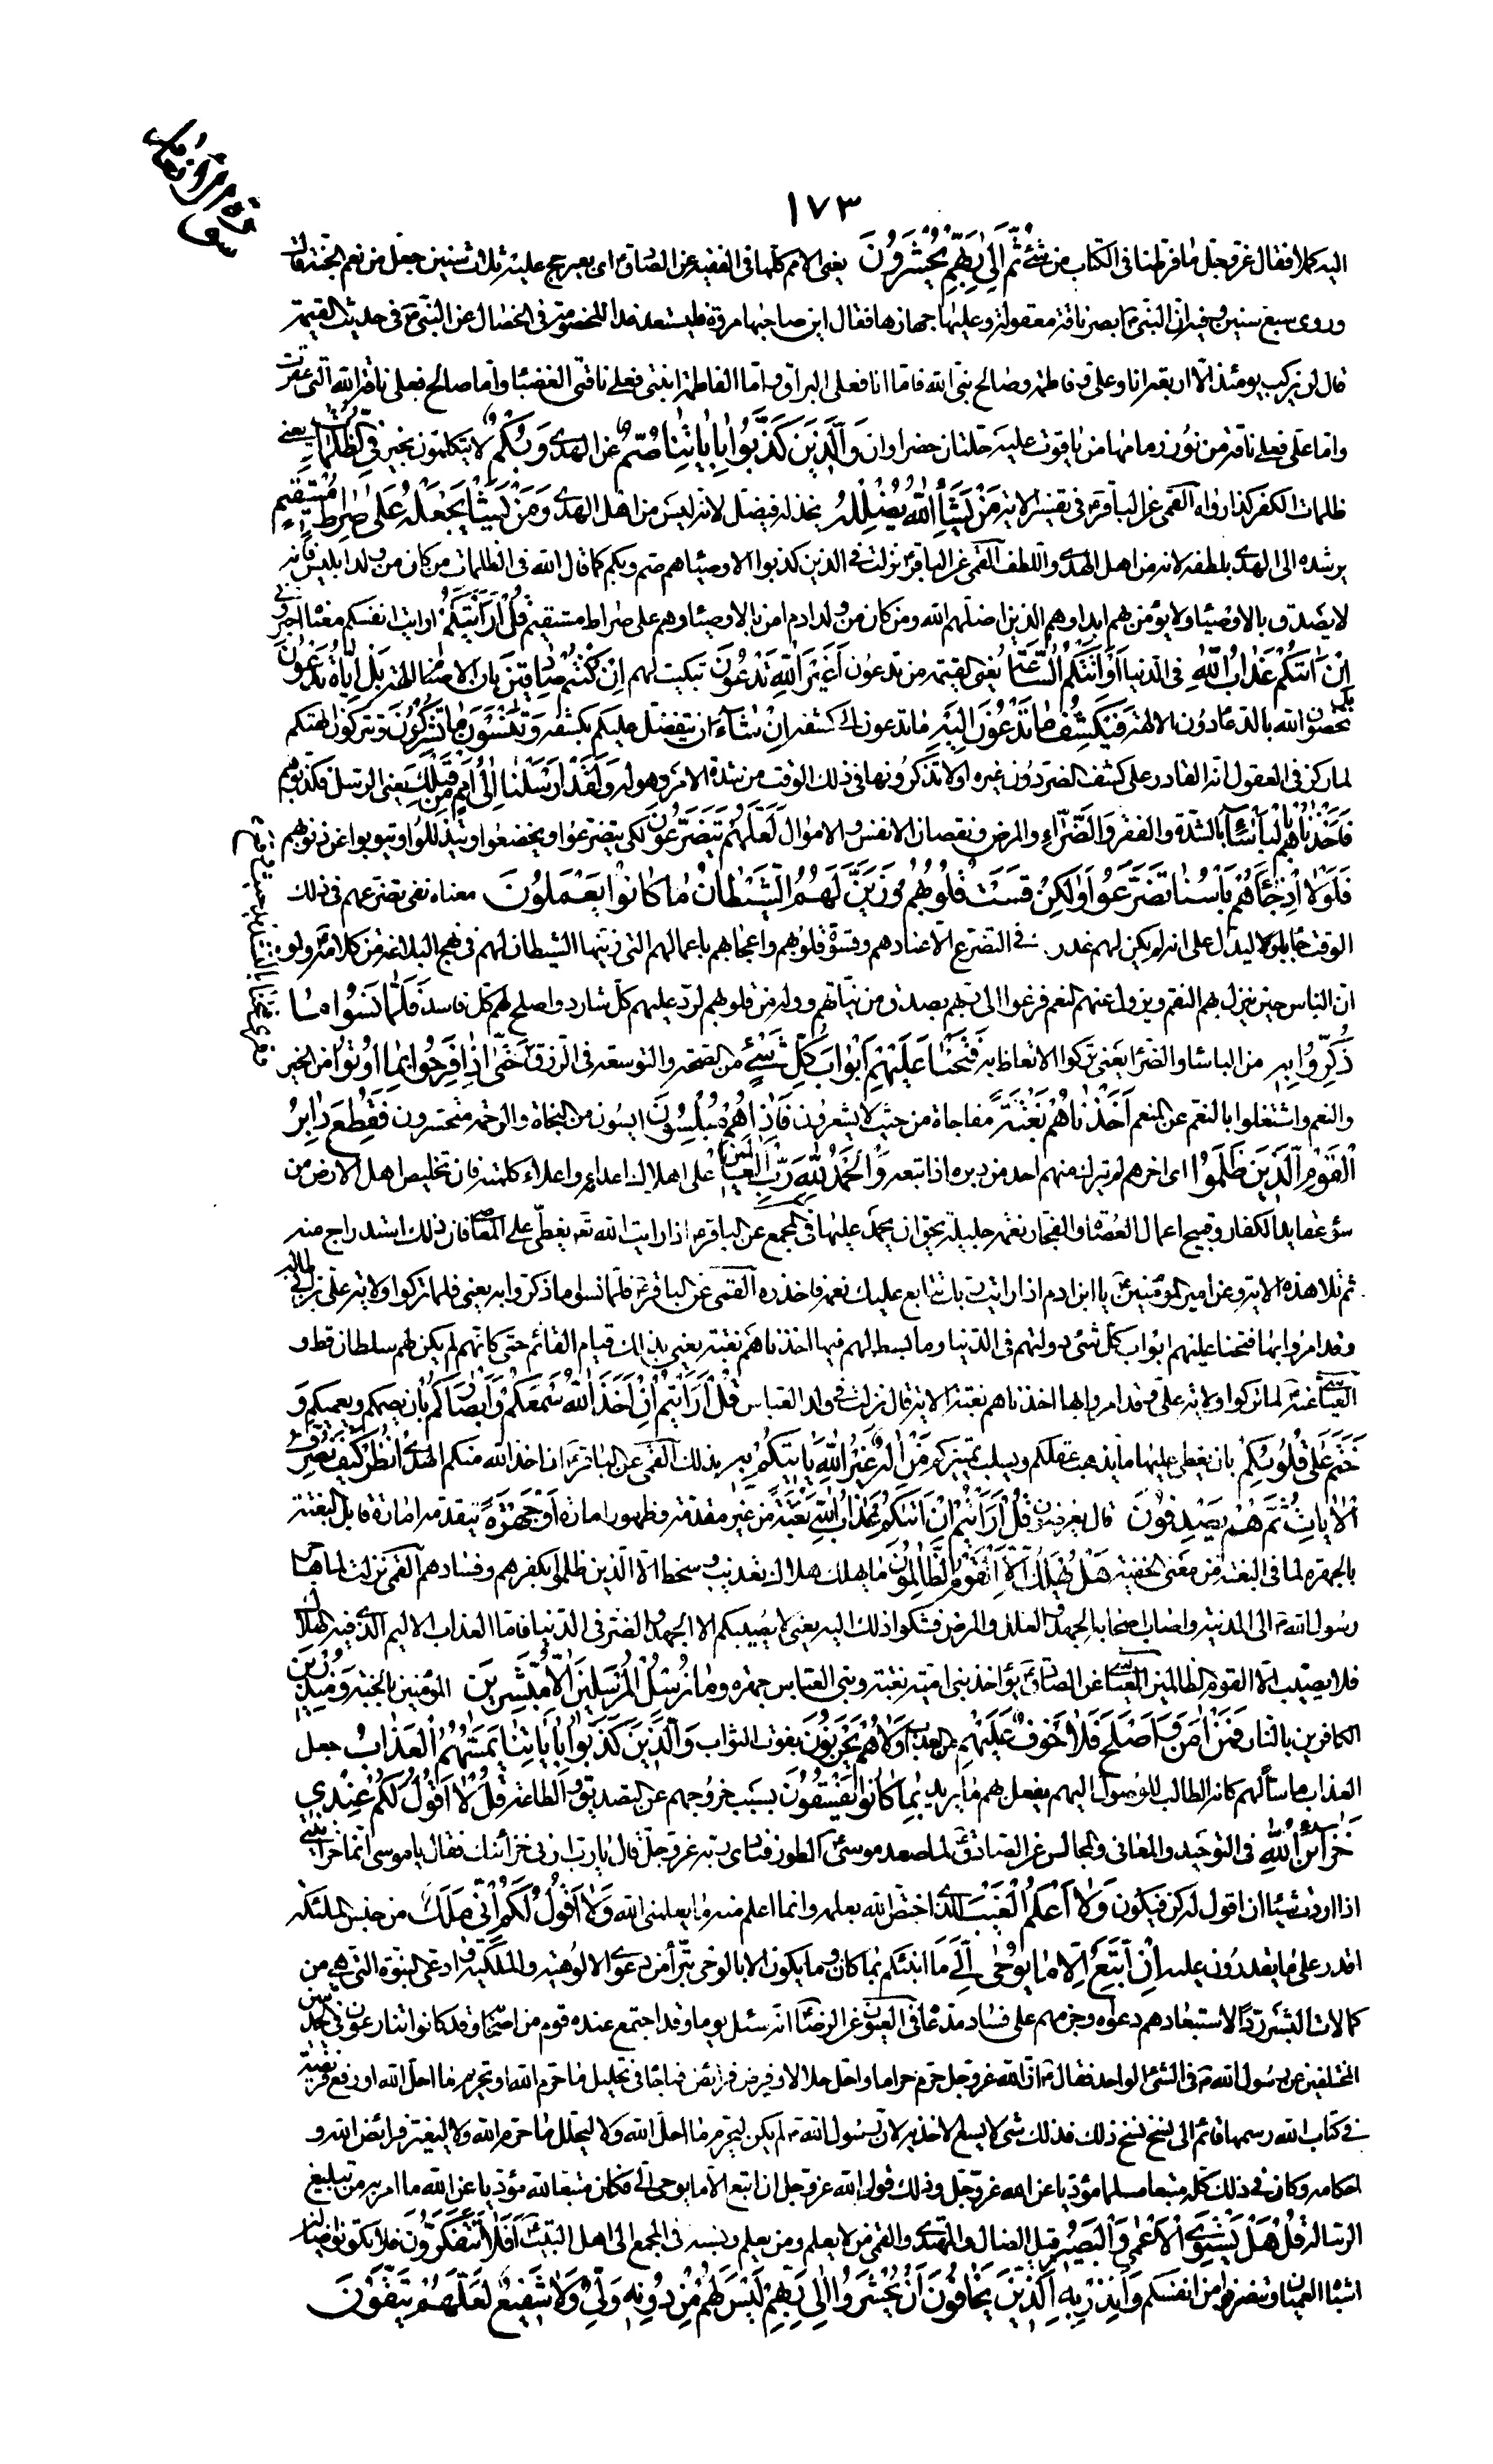 ١٧٣
اليه كملا فقال عز وجل ما فرطنا في الكتاب من شئ ثُمَّ إِلَىٰ رَبِّهِمْ يُحْشَرُونَ يعني الامم كلها في الفقيه عن الصادق اي بعير حج عليه ثلاث سنين جعل من نعم الجنة قال
وروى سبع سنين وفيه ان النبي ابصر ناقة معقولة وعليها جهازها فقال اين صاحبها مروه فليستعد غدا للخصومة في الخصال عن النبي في حديث القيمة
قال لن يركب يومئذ الا اربعة انا وعلي وفاطمة وصالح نبي الله فاما انا فعلى البراق واما الفاطمة ابنتي فعلى ناقتي الغضباء واما صالح فعلى ناقة الله التي عقرت
واما علي فعلى ناقة من نور زمامها من ياقوت عليه حلتان خضراوان وَالَّذِينَ كَذَّبُوا بِآيَاتِنَا صُمٌّ عن الهدى وَبُكْمٌ لا يتكلمون بخير فِي الظُّلُمَاتِ يعني
ظلمات الكفر كذا رواه القمي عن الباقر في تفسير الاية مَنْ يَشَأِ اللَّهُ يُضْلِلْهُ يخذله فيضل لانه ليس من اهل الهدى وَمَنْ يَشَأْ يَجْعَلْهُ عَلَىٰ صِرَاطٍ مُسْتَقِيمٍ
يرشده الى الهدى بلطفه لانه من اهل الهدى واللطف القمي عن الباقر نزلت في الذين كذبوا الاوصياء هم صم وبكم كما قال الله في الظلمات من كان من ولد ابليس فانه
لا يصدق بالاوصياء ولا يؤمن بهم ابدا وهم الذين اضلهم الله ومن كان من ولد ادم امن بالاوصياء وهم على صراط مستقيم قُلْ أَرَأَيْتَكُمْ ارايت انفسكم معناه اخبروني
إِنْ أَتَاكُمْ عَذَابُ اللَّهِ في الدنيا أَوْ أَتَتْكُمُ السَّاعَةُ يعني القيمة من تدعون أَغَيْرَ اللَّهِ تَدْعُونَ تبكيت لهم إِنْ كُنْتُمْ صَادِقِينَ بان الاصنام الهة بَلْ إِيَّاهُ تَدْعُونَ
بل تخصون الله بالدعاء دون الالهة فَيَكْشِفُ مَا تَدْعُونَ إِلَيْهِ ما تدعون الى كشفه إِنْ شَاءَ ان يتفضل عليكم بكشفه وَتَنْسَوْنَ مَا تُشْرِكُونَ وتتركون الهتكم
لما ركز في العقول انه القادر على كشف الضر دون غيره او لا تذكرونها في ذلك الوقت من شدة الامر وهوله وَلَقَدْ أَرْسَلْنَا إِلَىٰ أُمَمٍ مِنْ قَبْلِكَ يعني الرسل فكذبوهم
فَأَخَذْنَاهُمْ بِالْبَأْسَاءِ بالشدة والفقر وَالضَّرَّاءِ والمرض ونقصان الانفس والاموال لَعَلَّهُمْ يَتَضَرَّعُونَ لكي يتضرعوا ويخضعوا ويتذللوا ويتوبوا عن ذنوبهم
فَلَوْلَا إِذْ جَاءَهُمْ بَأْسُنَا تَضَرَّعُوا وَلَٰكِنْ قَسَتْ قُلُوبُهُمْ وَزَيَّنَ لَهُمُ الشَّيْطَانُ مَا كَانُوا يَعْمَلُونَ معناه نفي تضرعهم في ذلك
الوقت جاء بلولا ليدل على انه لم يكن لهم عذر في التضرع الا عنادهم وقسوة قلوبهم واعجابهم باعمالهم التي زينها الشيطان لهم في نهج البلاغة من كلامه ولو
ان الناس حين ينزل بهم النقم ويزول عنهم النعم فزعوا الى ربهم بصدق من نياتهم ووله من قلوبهم لرد عليهم كل شارد واصلح لهم كل فاسد فَلَمَّا نَسُوا مَا
ذُكِّرُوا بِهِ من الباساء والضراء يعني تركوا الاتعاظ به فَتَحْنَا عَلَيْهِمْ أَبْوَابَ كُلِّ شَيْءٍ من الصحة والتوسعة في الرزق حَتَّىٰ إِذَا فَرِحُوا بِمَا أُوتُوا من الخير
والنعم واشتغلوا بالنعم عن المنعم أَخَذْنَاهُمْ بَغْتَةً مفاجاة من حيث لا يشعرون فَإِذَا هُمْ مُبْلِسُونَ ايسون من النجاة والرحمة متحسرون فَقُطِعَ دَابِرُ
الْقَوْمِ الَّذِينَ ظَلَمُوا اي اخرهم لم يترك منهم احد من دبره اذا تبعه وَالْحَمْدُ لِلَّهِ رَبِّ الْعَالَمِينَ على اهلاك اعدائه واعلاء كلمته فان تخليص اهل الارض من
سوء عقايد الكفار وقبيح اعمال العصاة والفجار نعمة جليلة يحق ان يحمد عليها في المجمع عن الباقر اذا رايت الله تعه يعطي على المعاصي فان ذلك استدراج منه
ثم تلا هذه الاية وعن امير المؤمنين يا ابن ادم اذا رايت ربك تتابع عليك نعمه فاحذره القمي عن الباقر فلما نسوا ما ذكروا به يعني فلما تركوا ولاية علي بن ابي طالب
وقد امروا بها فتحنا عليهم ابواب كل شئ دولتهم في الدنيا وما بسط لهم فيها اخذناهم بغتة يعني بذلك قيام القائم حتى كانهم لم يكن لهم سلطان قط و
العياشي عنه لما تركوا ولاية علي وقد امروا بها اخذناهم بغتة الاية قال نزلت في ولد العباس قُلْ أَرَأَيْتُمْ إِنْ أَخَذَ اللَّهُ سَمْعَكُمْ وَأَبْصَارَكُمْ بان يصمكم ويعميكم وَ
خَتَمَ عَلَىٰ قُلُوبِكُمْ بان يغطي عليها ما يذهب عقلكم ويسلب تميزكم مَنْ إِلَٰهٌ غَيْرُ اللَّهِ يَأْتِيكُمْ بِهِ بذلك القمي عن الباقر ان اخذ الله منكم الهدى انْظُرْ كَيْفَ نُصَرِّفُ
الْآيَاتِ ثُمَّ هُمْ يَصْدِفُونَ قال يعرضون قُلْ أَرَأَيْتَكُمْ إِنْ أَتَاكُمْ عَذَابُ اللَّهِ بَغْتَةً من غير مقدمة وظهور امارة أَوْ جَهْرَةً يتقدمه امارة قابل البغتة
بالجهرة لما في البغتة من معنى الخفية هَلْ يُهْلَكُ إِلَّا الْقَوْمُ الظَّالِمُونَ ما يهلك هلاك تعذيب وسخط الا الذين ظلموا بكفرهم وفسادهم القمي نزلت لما هاجر
رسول الله الى المدينة واصاب اصحابه الجهد والعلل والمرض فشكوا ذلك اليه يعني لا يصيبكم الا الجهد والضر في الدنيا فاما العذاب الاليم الذي فيه الهلاك
فلا يصيب الا القوم الظالمين العياشي عن الصادق يؤاخذ بني امية بغتة وبني العباس جهرة وَمَا نُرْسِلُ الْمُرْسَلِينَ إِلَّا مُبَشِّرِينَ المؤمنين بالجنة وَمُنْذِرِينَ
الكافرين بالنار فَمَنْ آمَنَ وَأَصْلَحَ فَلَا خَوْفٌ عَلَيْهِمْ من العذاب وَلَا هُمْ يَحْزَنُونَ بفوت الثواب وَالَّذِينَ كَذَّبُوا بِآيَاتِنَا يَمَسُّهُمُ الْعَذَابُ جعل
العذاب ماسا لهم كانه الطالب للوصول اليهم يفعل بهم ما يريد بِمَا كَانُوا يَفْسُقُونَ بسبب خروجهم عن التصديق والطاعة قُلْ لَا أَقُولُ لَكُمْ عِنْدِي
خَزَائِنُ اللَّهِ في التوحيد والمعاني والمجالس عن الصادق لما صعد موسى الطور فنادى ربه عز وجل قال يا رب ارني خزائنك فقال يا موسى انما خزائني
اذا اردت شيئا ان اقول له كن فيكون وَلَا أَعْلَمُ الْغَيْبَ الذي اختص الله بعلمه وانما اعلم منه ما يعلمني الله وَلَا أَقُولُ لَكُمْ إِنِّي مَلَكٌ من جنس الملئكة
اقدر على ما يقدرون عليه إِنْ أَتَّبِعُ إِلَّا مَا يُوحَىٰ إِلَيَّ ما انبئكم بما كان وما يكون الا بالوحي تبرأ من دعوى الالوهية والملكية وادعى النبوة التي هي من
كمالات البشر ردا لاستبعادهم دعواه وجزمهم على فساد مدعاه في العيون عن الرضا انه سئل يوما وقد اجتمع عنده قوم من اصحابه وقد كانوا تنازعوا في الحديثين
المختلفين عن رسول الله في الشئ الواحد فقال ان الله عز وجل حرم حراما واحل حلالا وفرض فرائض فما جاء في تحليل ما حرم الله او تحريم ما احل الله او رفع فريضة
في كتاب الله رسمها قائم الى نسخ نسخ ذلك فذلك شئ لا يسع الاخذ به لان رسول الله لم يكن ليحرم ما احل الله ولا ليحلل ما حرم الله ولا ليغير فرائض الله و
احكامه وكان في ذلك كله متبعا مسلما مؤديا عن الله عز وجل وذلك قول الله عز وجل ان اتبع الا ما يوحى الي فكان متبعا لله مؤديا عن الله ما امر به من تبليغ
الرسالة قُلْ هَلْ يَسْتَوِي الْأَعْمَىٰ وَالْبَصِيرُ قيل الضال والمهتدي والقمي من لا يعلم ومن يعلم ونسبه في المجمع الى اهل البيت أَفَلَا تَتَفَكَّرُونَ فلا تكونوا ضالين
اشباه العميان وتنصفوا من انفسكم وَأَنْذِرْ بِهِ الَّذِينَ يَخَافُونَ أَنْ يُحْشَرُوا إِلَىٰ رَبِّهِمْ لَيْسَ لَهُمْ مِنْ دُونِهِ وَلِيٌّ وَلَا شَفِيعٌ لَعَلَّهُمْ يَتَّقُونَ